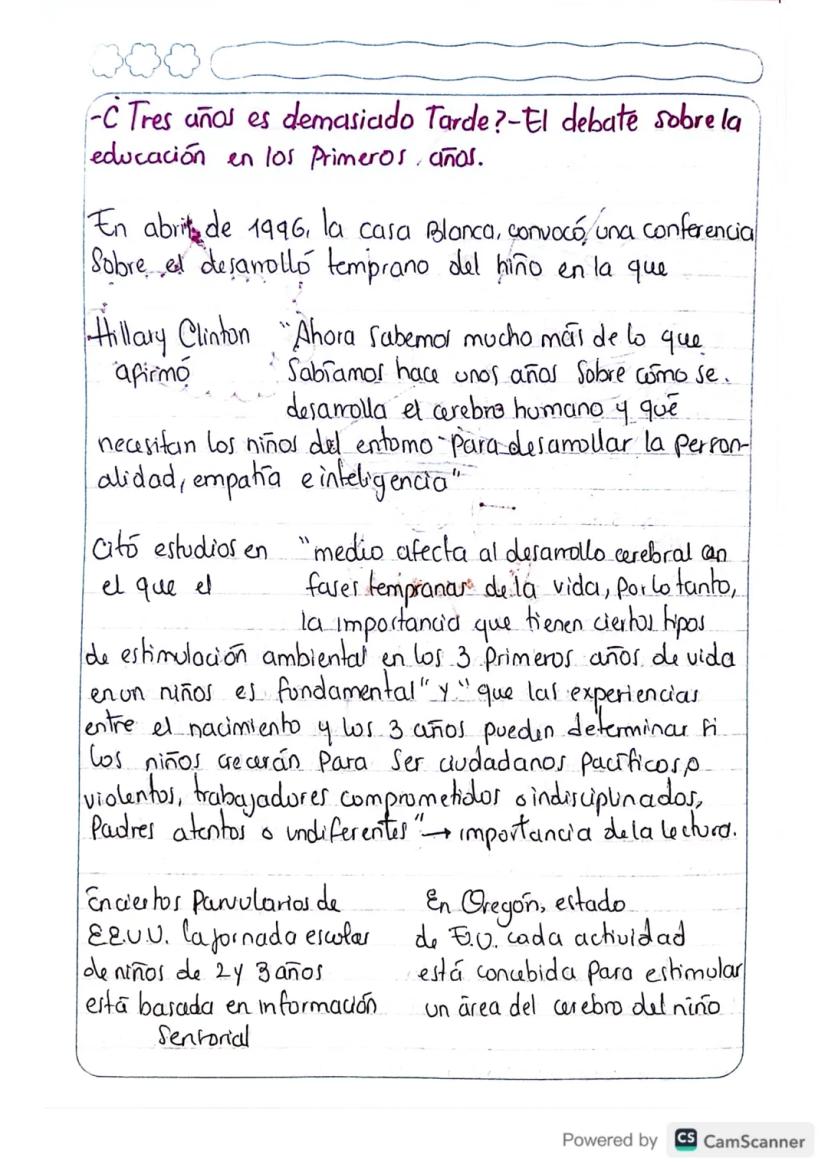 -¿Tres años es demasiado Tarde?-El debate sobre la
educación en los Primeros años.
En abril de 1996, la casa Blanca, convocó, una conferencia
Sobre el desarrolló temprano del niño en la que
Hillary Clinton
afirmó
"Ahora Sabemos mucho más de lo que
Sabíamos hace unos años Sobre cómo se
desarrolla el cerebro humano y qué
necesitan los niños del entorno para desarrollar la person-
alidad, empatía e inteligencia"
Citó estudios en
el que el
"medio afecta al desarrollo cerebral en
fases tempranas de la vida, por lo tanto,
la importancia que tienen ciertos tipos
de estimulación ambiental en los 3 primeros años de vida
en un niños es fundamental" y "que las experiencias
entre el nacimiento y los 3 años pueden determinar si
los niños crecerán para ser ciudadanos pacíficos o
violentos, trabajadores comprometidos o indisciplinados,
Padres atentos o indiferentes" → importancia de la lectura.
En ciertos Parvularios de
EE.UU. la jornada escolar
de niños de 2 y 3 años
está basada en información
Sensorial
En Oregón, estado
de E.U. cada actividad
está concebida para estimular
un área del cerebro del niño
Powered by CS CamScanner